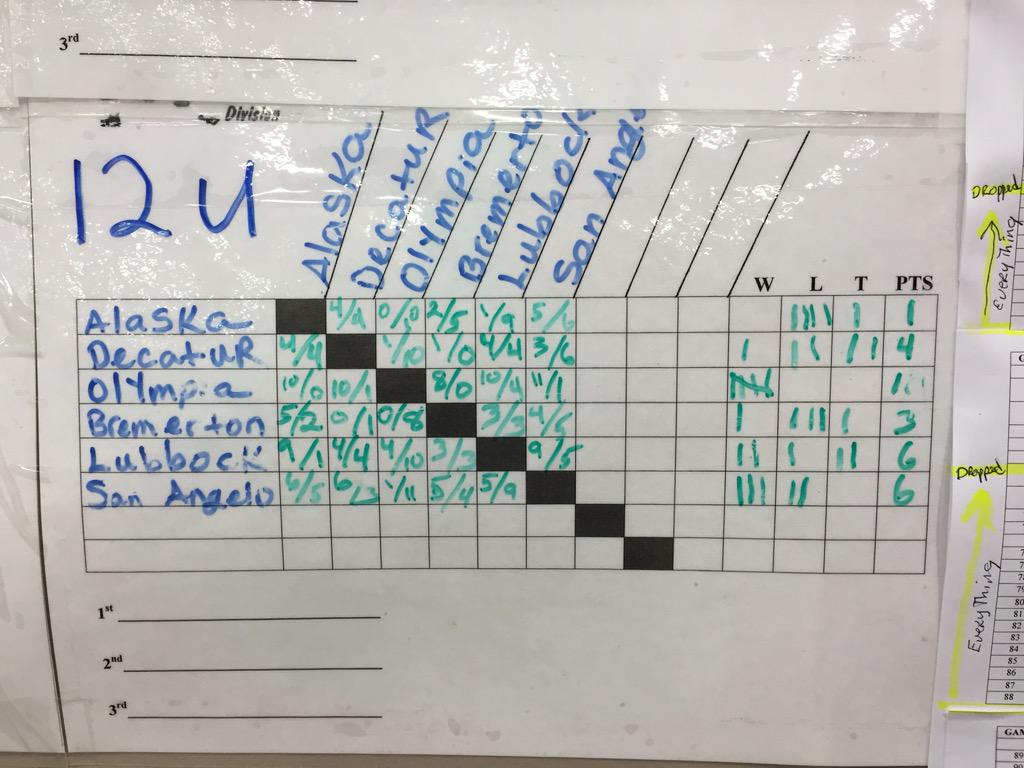 3rd
Division
12U
Alaska Decatur Olympia Bremerto Lubbock San Ange
W L T PTS
Alaska 4/4 2/5 1/9 5/6 1
Decatur 4/4 1/10 1/0 4/4 3/6 4
Olympia 10/0 10/1 8/0 10/4 11/1
Bremerton 5/2 0/1 0/8 3/3 3
Lubbock 9/1 4/4 4/10 3/3 9/5 6
San Angelo 6/5 6/3 1/11 5/4 5/9 6
1st
2nd
3rd
Dropped
Everything
Dropped
Everything
79
80
81
82
83
84
85
86
87
88
GAM
89